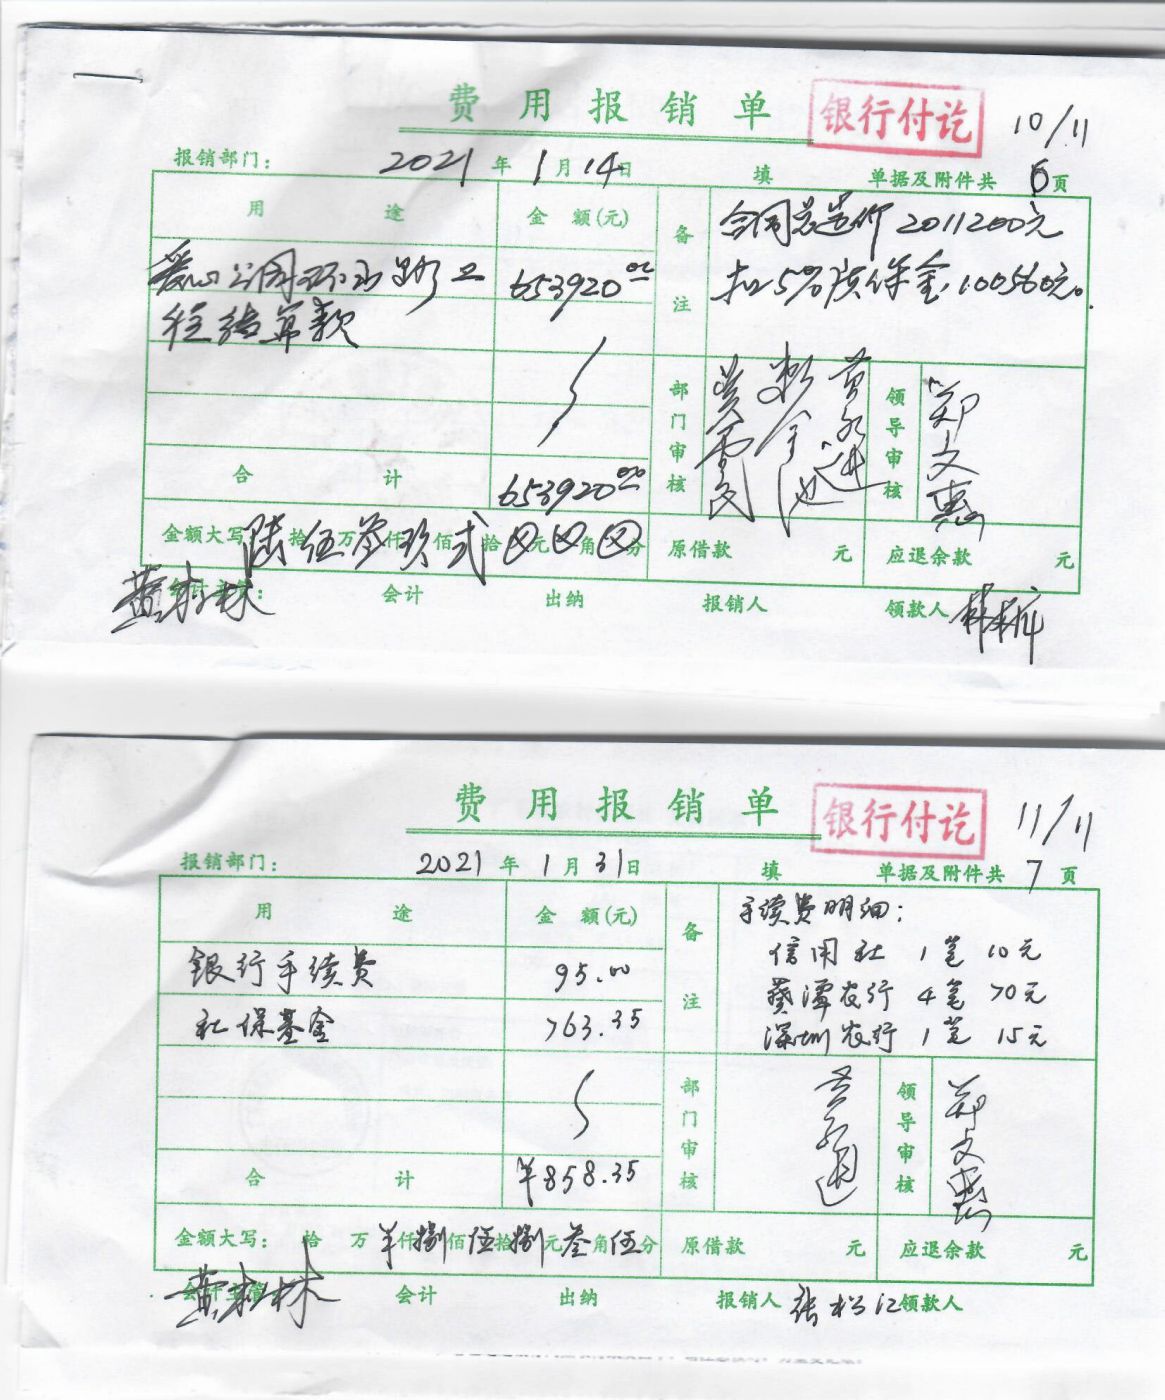 费用报销单
银行付讫
10/11
报销部门： 2021年1月14日 填 单据及附件共6页
用途 金额(元) 备注
合同总造价2011200元
扣5%质保金，100560元。
爱心公园环山路工 653920.00
程结算款
合计 653920.00
部门审核 领导审核 郑文惠
金额大写 陆拾伍万叁仟玖佰弍拾⊗元⊗角⊗分 原借款 元 应退余款 元
会计主管： 会计 出纳 报销人 领款人
费用报销单
银行付讫
11/11
报销部门： 2021年1月31日 填 单据及附件共7页
用途 金额(元) 备注
手续费明细：
信用社 1笔 10元
葵潭农行 4笔 70元
深圳农行 1笔 15元
银行手续费 95.00
社保基金 763.35
合计 ¥858.35
部门审核 领导审核 郑文惠
金额大写： 拾 万 ¥仟捌佰伍拾捌元叁角伍分 原借款 元 应退余款 元
会计主管 会计 出纳 报销人 张松江 领款人